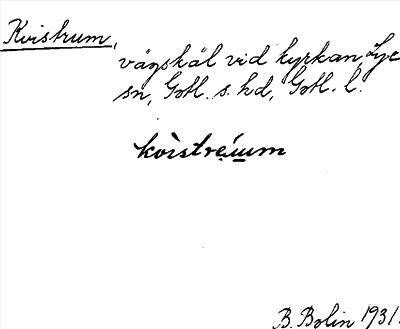 Kvistrum,
vägskäl vid kyrkan, Lye
sn, Gotl. s. hd, Gotl. l.
kvistrèum
B. Bolin 1931.